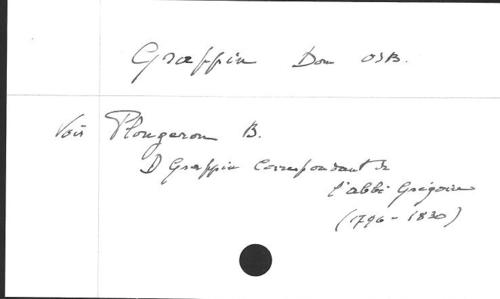 Grappin Dom OSB.
Voir Plongeron B.
D Grappin correspondant de
l'abbé Grégoire
(1796-1830)